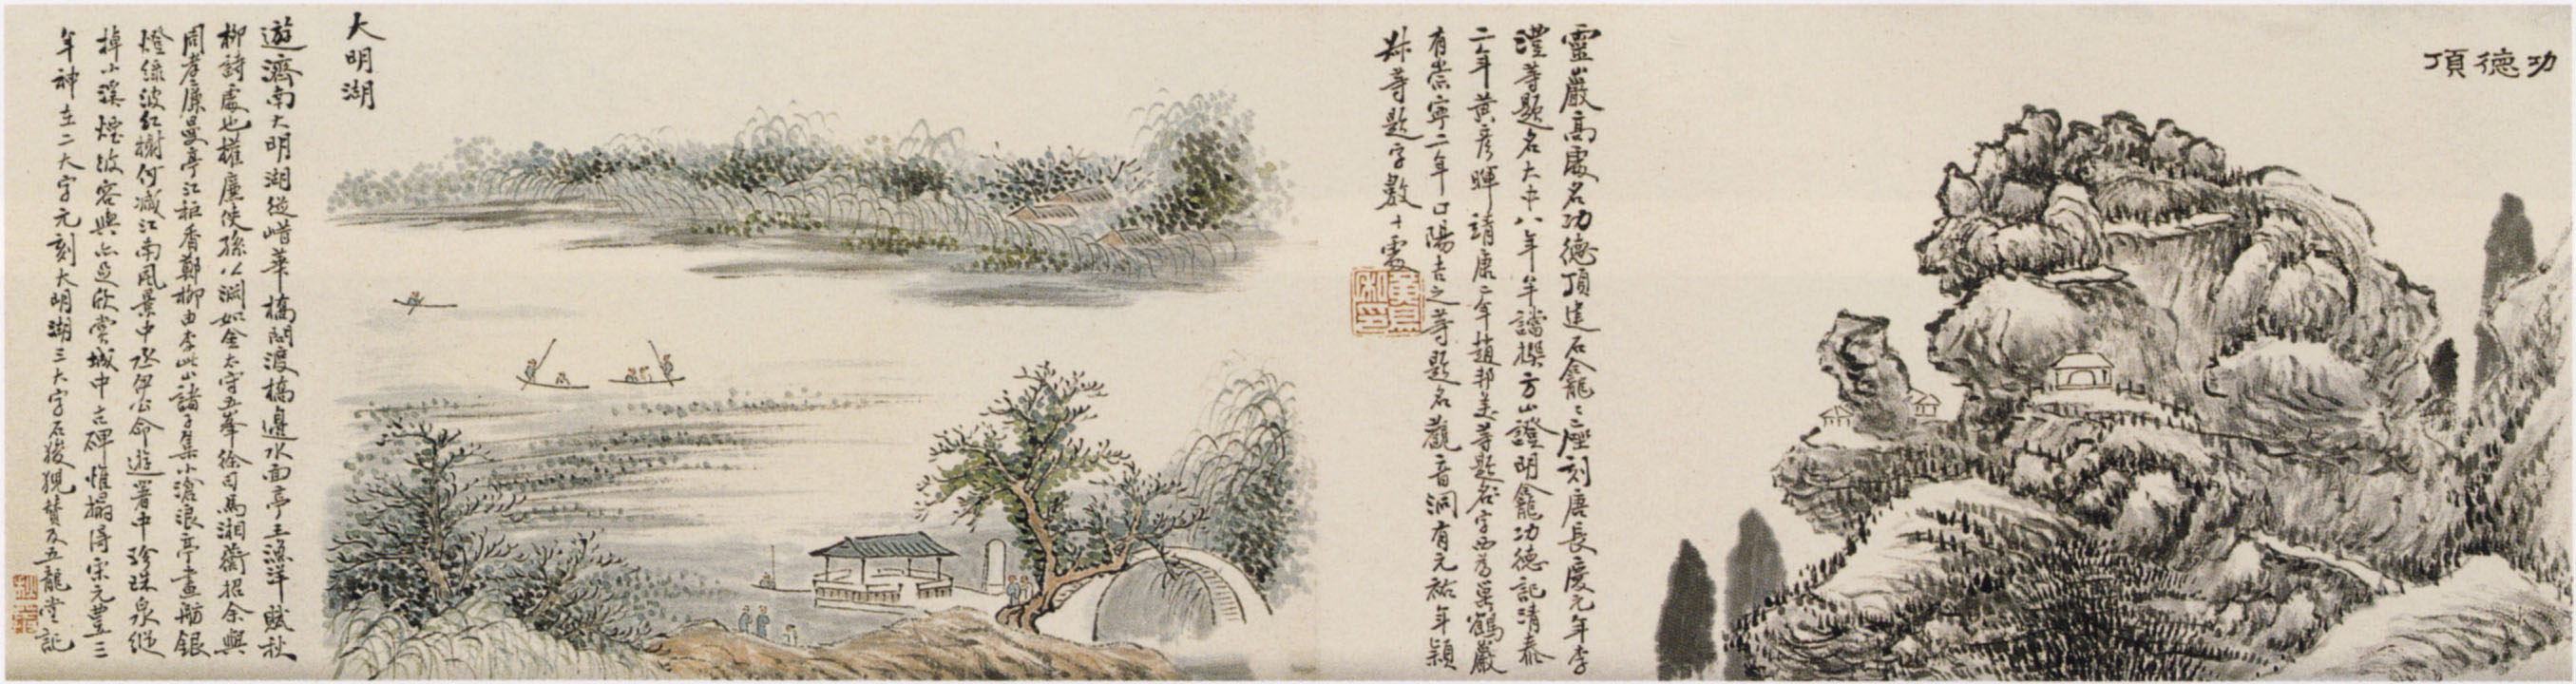 功德頂
靈巖高處名功德頂造石龕三座刻唐長慶元年李
灃等題名大中八年牟璫撰方山證明龕功德記清泰
二年黃彥暉靖康二年趙邦美等題名字西為巢鶴巖
有崇寧二年口陽吉之等題名觀音洞有元祐年穎
叔等題字數十處
大明湖
遊濟南大明湖從㟙華橋問渡橋邊水面亭王漁洋賦秋
柳詩處也權廉使孫公淵如金太守五峯徐司馬湘蘅招余與
周孝廉曼亭江秬香鄭柳由李此山諸子集小滄浪亭畫舫銀
燈綠波紅榭何減江南風景中丞伊公命遊署中珍珠泉縱
棹小溪煙波容與亦足欣賞城中古碑惟搨得宋元豐三
年神在二大字元刻大明湖三大字石猨猊贊及五龍堂記